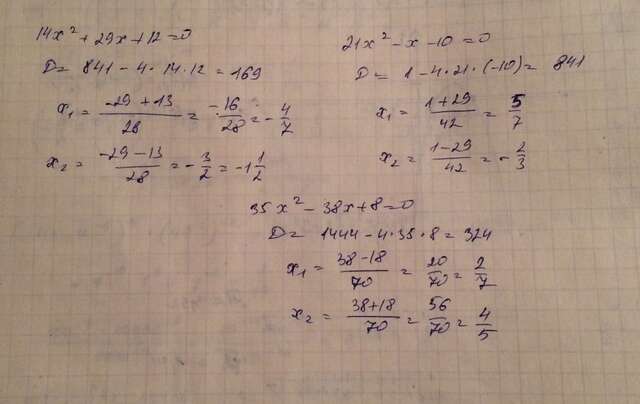 14x² + 29x + 12 = 0
D = 841 - 4 · 14 · 12 = 169
x₁ = (-29 + 13)/28 = -16/28 = -4/7
x₂ = (-29 - 13)/28 = -3/2 = -1 1/2
21x² - x - 10 = 0
D = 1 - 4 · 21 · (-10) = 841
x₁ = (1 + 29)/42 = 5/7
x₂ = (1 - 29)/42 = -2/3
35x² - 38x + 8 = 0
D = 1444 - 4 · 35 · 8 = 324
x₁ = (38 - 18)/70 = 20/70 = 2/7
x₂ = (38 + 18)/70 = 56/70 = 4/5